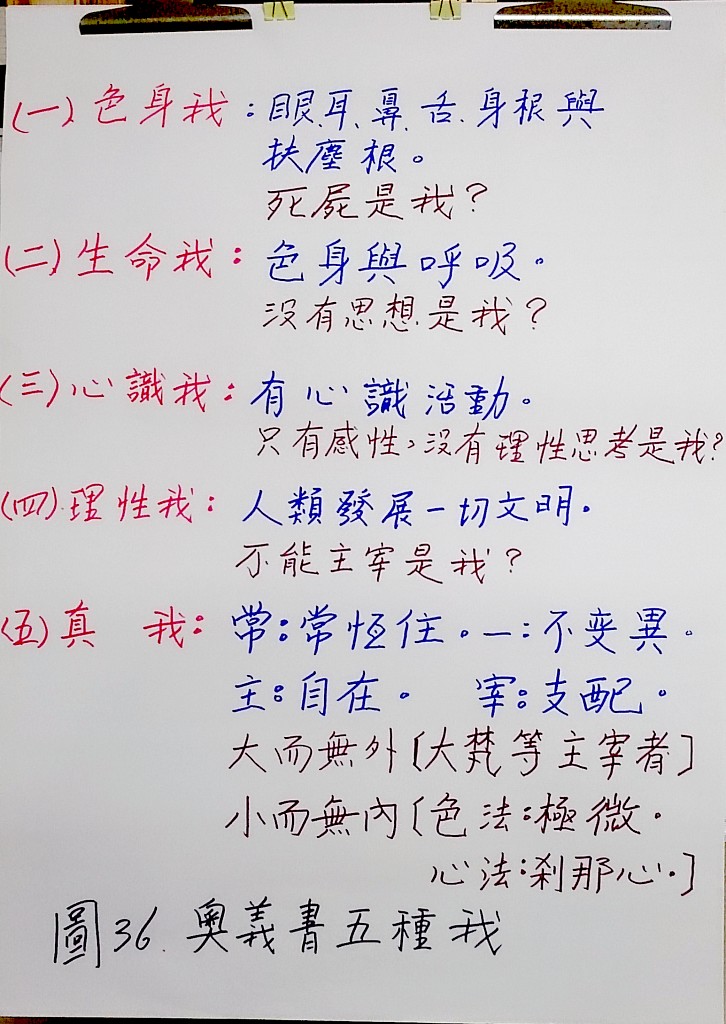 (一)色身我：眼、耳、鼻、舌、身根與
扶塵根。
死屍是我？
(二)生命我：色身與呼吸。
没有思想是我？
(三)心識我：有心識活動。
只有感性，没有理性思考是我？
(四)理性我：人類發展一切文明。
不能主宰是我？
(五)真 我：常：常恆住。一：不変異。
主：自在。 宰：支配。
大而無外〔大梵等主宰者〕
小而無內〔色法：極微。
心法：刹那心。〕
圖36.奧義書五種我